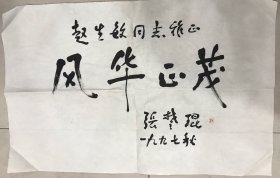 赵生敏同志雅正
风华正茂
張楚琨
一九九七秋